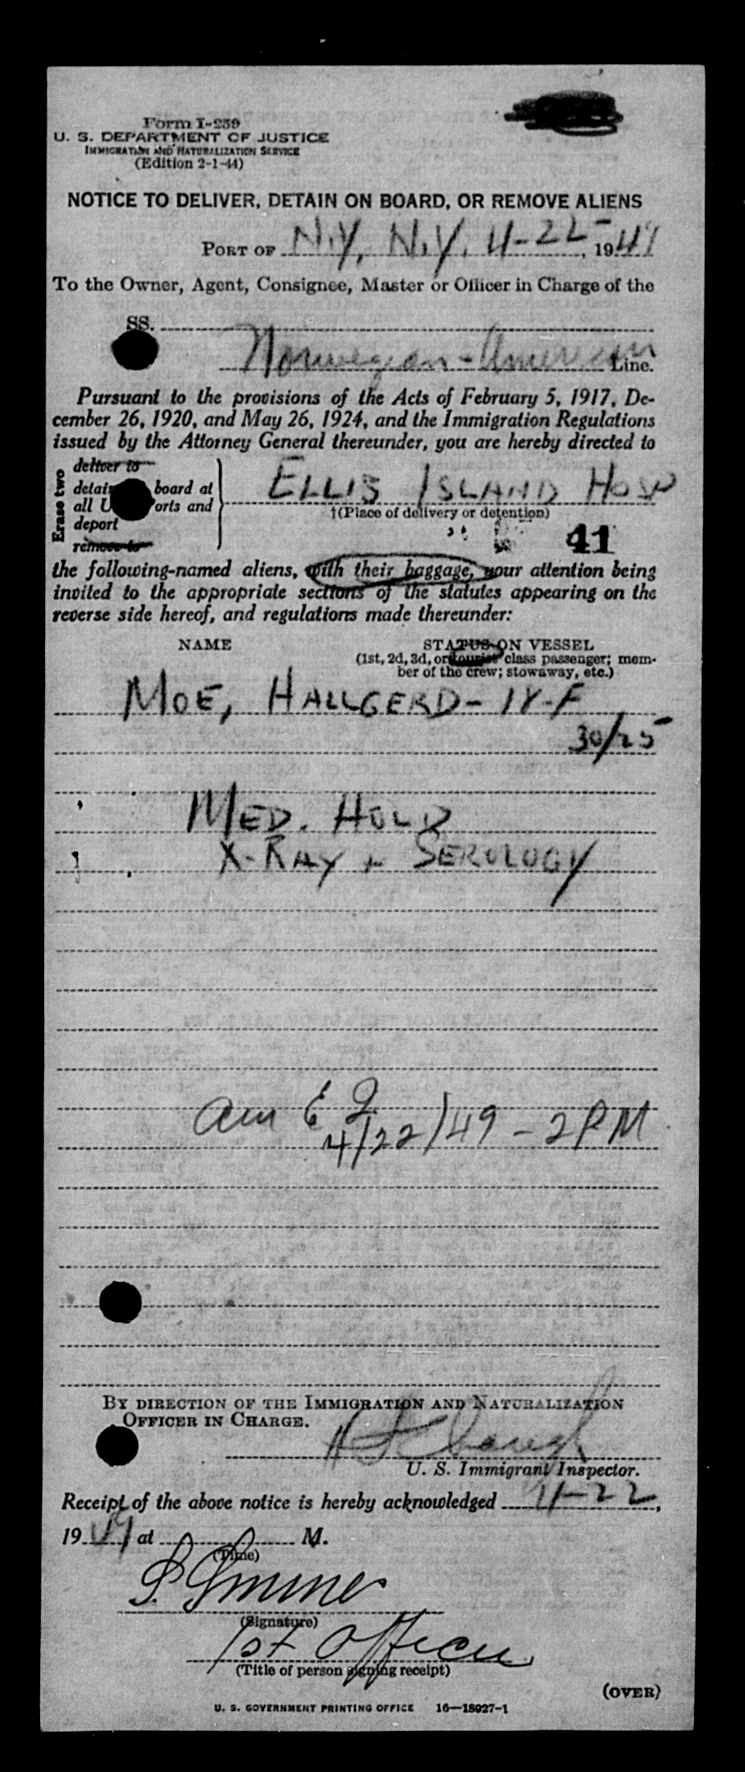 Form I-259
U. S. DEPARTMENT OF JUSTICE
IMMIGRATION AND NATURALIZATION SERVICE
(Edition 2-1-44)
NOTICE TO DELIVER, DETAIN ON BOARD, OR REMOVE ALIENS
PORT OF N.Y, N.Y. 4-22, 1949
To the Owner, Agent, Consignee, Master or Officer in Charge of the
SS.
Norwegian-American Line.
Pursuant to the provisions of the Acts of February 5, 1917, De-
cember 26, 1920, and May 26, 1924, and the Immigration Regulations
issued by the Attorney General thereunder, you are hereby directed to
Erase two
deliver to
detain board at
all U orts and
deport
remove to
ELLIS ISLAND HOSP
†(Place of delivery or detention)
41
the following-named aliens, with their baggage, your attention being
invited to the appropriate sections of the statutes appearing on the
reverse side hereof, and regulations made thereunder:
NAME STATUS ON VESSEL
(1st, 2d, 3d, or tourist class passenger; mem-
ber of the crew; stowaway, etc.)
MOE, HALLGERD- 18-F
30/25
MED. HOLD
X-RAY + SEROLOGY
4/22/49 - 2 PM
BY DIRECTION OF THE IMMIGRATION AND NATURALIZATION
OFFICER IN CHARGE.
U. S. Immigrant Inspector.
Receipt of the above notice is hereby acknowledged 4-22,
1949 at M.
(Time)
(Signature)
1st Officer
(Title of person signing receipt)
(OVER)
U. S. GOVERNMENT PRINTING OFFICE 16—18027-1